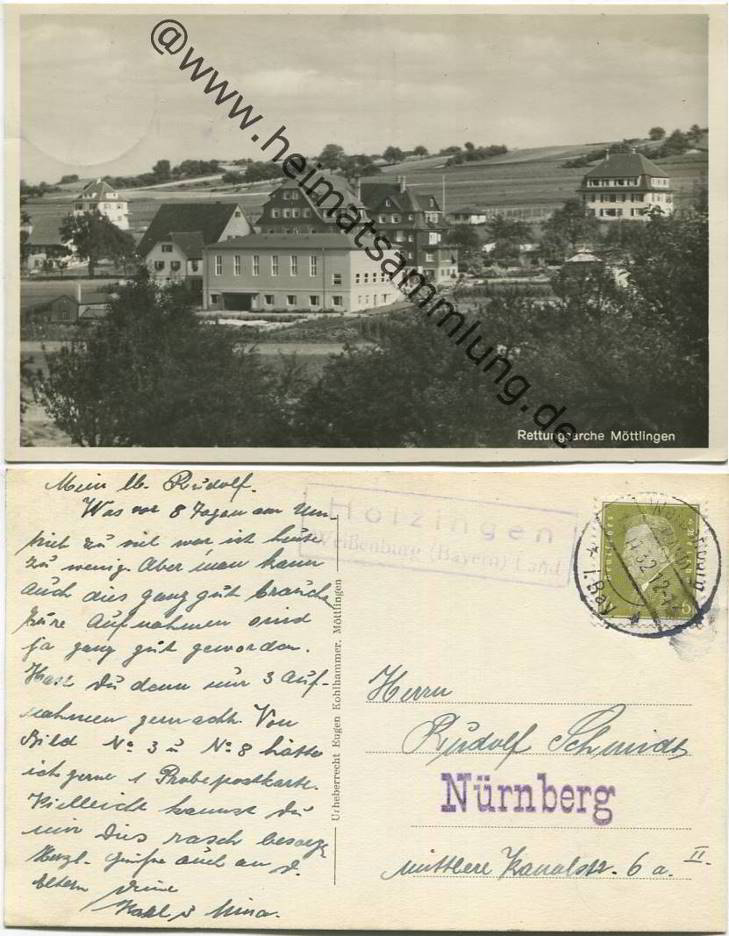 @www.heimatsammlung.de
Rettungsarche Möttlingen
Mein lb. Rudolf.
Was vor 8 Tagen am
zu viel war ist heute
zu wenig. Aber man kann
auch dies ganz gut
Aufnahmen sind
ja ganz gut geworden.
Hast Du denn nur 3 Auf-
nahmen gemacht. Von
Bild No 3 u No 8 hätte
ich gerne 1 Probepostkarte.
Vielleicht kannst Du
mir dies rasch
Herzl. Grüße auch an d.
Eltern Deine
Karl u Mina.
Urheberrecht Eugen Kohlhammer, Möttlingen
Holzingen
Weißenburg (Bayern) Land
i. Bay.
Herrn
Rudolf Schmidt
Nürnberg
mittlere Kanalstr. 6 a. II.